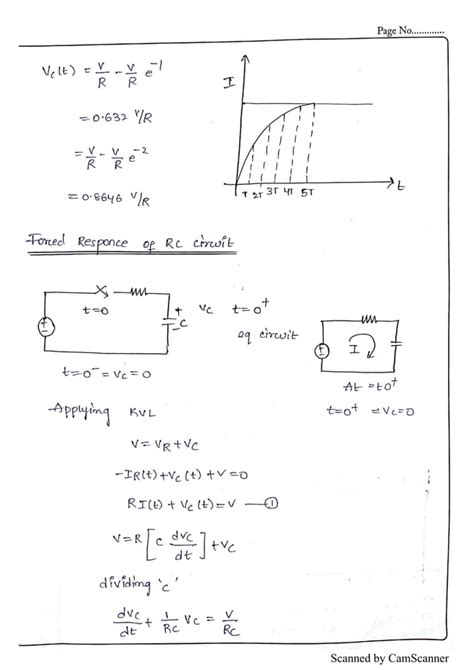 Page No.............
Vc(t) = V/R - V/R e^-1
= 0.632 V/R
= V/R - V/R e^-2
= 0.8646 V/R
I
T 2T 3T 4T 5T
t
Forced Responce of RC circuit
t=0
+
-
C
Vc t=0+
eq circuit
+
-
I
t=0- = Vc = 0
At = t0+
t=0+ = Vc=0
Applying KVL
V = VR + Vc
-IR(t) + Vc(t) + V = 0
RI(t) + Vc(t) = V —①
V = R [ c dvc/dt ] + Vc
dividing 'c'
dvc/dt + 1/RC Vc = V/RC
Scanned by CamScanner